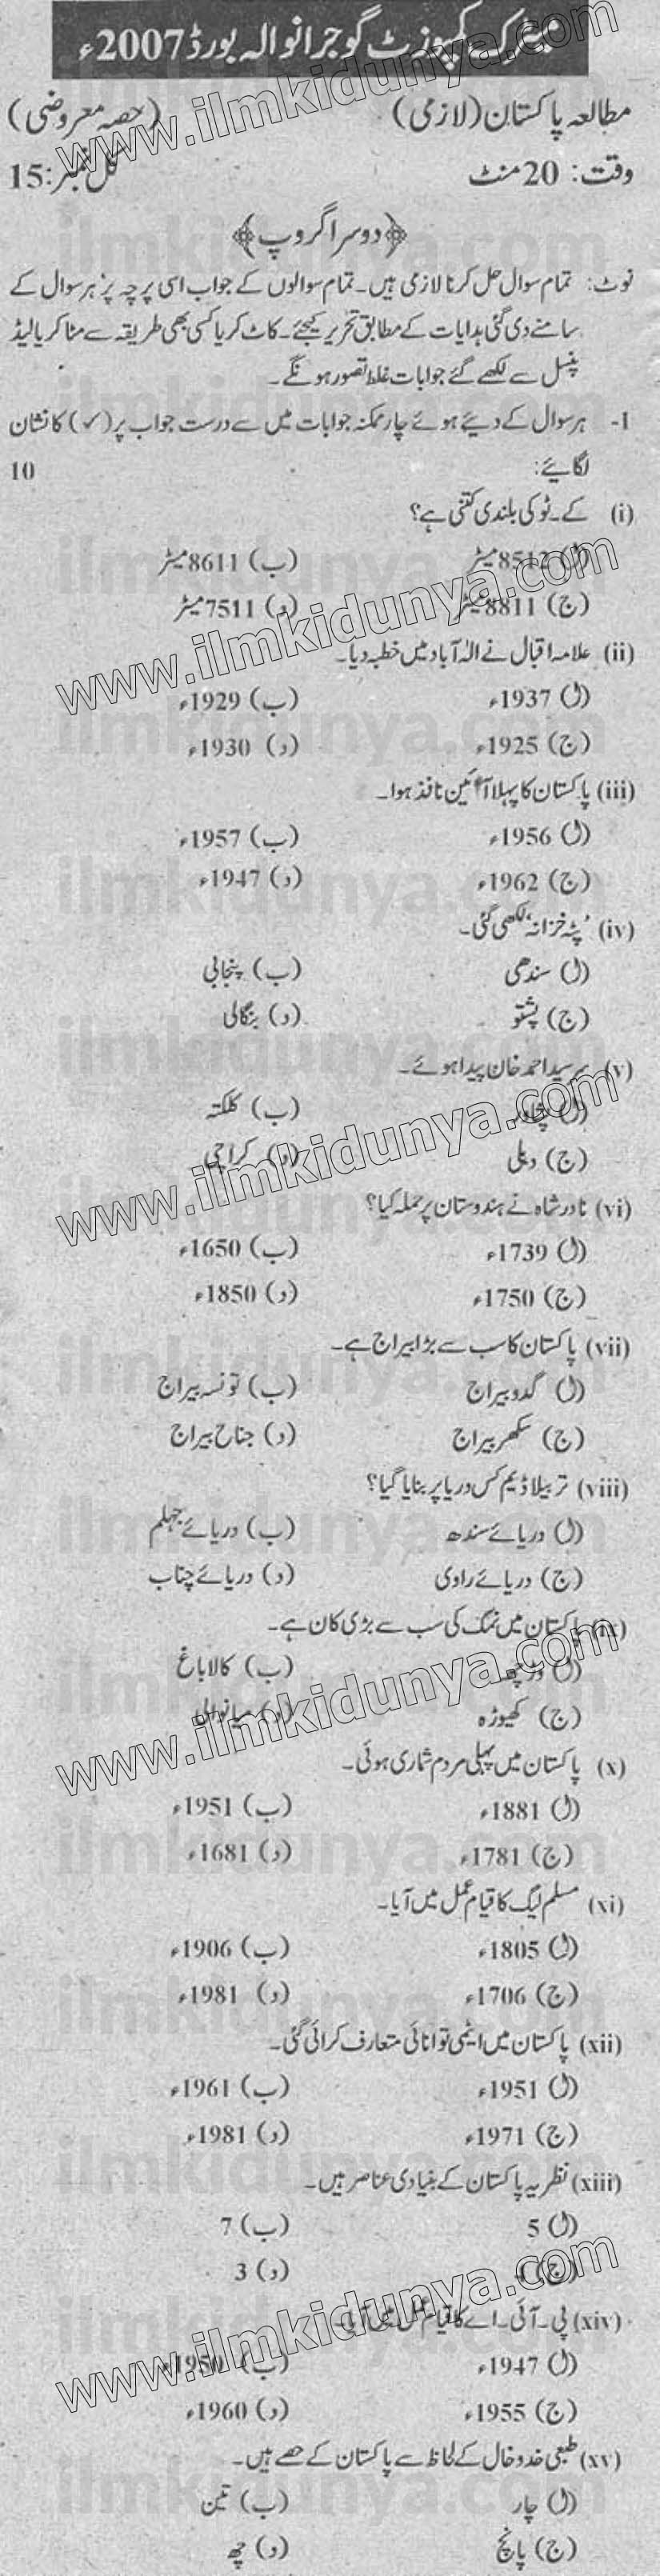 میٹرک کمپوزٹ گوجرانوالہ بورڈ 2007ء
مطالعہ پاکستان (لازمی) (حصہ معروضی)
وقت: 20 منٹ کل نمبر: 15
﴿دوسرا گروپ﴾
نوٹ: تمام سوال حل کرنا لازمی ہیں۔ تمام سوالوں کے جواب اسی پرچہ پر ہر سوال کے
سامنے دی گئی ہدایات کے مطابق تحریر کیجئے۔ کاٹ کر یا کسی بھی طریقہ سے مٹا کر یا لیڈ
پنسل سے لکھے گئے جوابات غلط تصور ہونگے۔
1- ہر سوال کے دیئے ہوئے چار ممکنہ جوابات میں سے درست جواب پر (✓) کا نشان
لگائیے: 10
(i) کے۔ٹو کی بلندی کتنی ہے؟
(ل) 8512 میٹر (ب) 8611 میٹر
(ج) 8811 میٹر (د) 7511 میٹر
(ii) علامہ اقبال نے الٰہ آباد میں خطبہ دیا۔
(ل) 1937ء (ب) 1929ء
(ج) 1925ء (د) 1930ء
(iii) پاکستان کا پہلا آئین نافذ ہوا۔
(ل) 1956ء (ب) 1957ء
(ج) 1962ء (د) 1947ء
(iv) 'پٹہ خزانہ' لکھی گئی۔
(ل) سندھی (ب) پنجابی
(ج) پشتو (د) بنگالی
(v) سرسید احمد خان پیدا ہوئے۔
(ل) (ب) کلکتہ
(ج) دہلی (د) کراچی
(vi) نادر شاہ نے ہندوستان پر حملہ کیا؟
(ل) 1739ء (ب) 1650ء
(ج) 1750ء (د) 1850ء
(vii) پاکستان کا سب سے بڑا بیراج ہے۔
(ل) گدو بیراج (ب) تونسہ بیراج
(ج) سکھر بیراج (د) جناح بیراج
(viii) تربیلا ڈیم کس دریا پر بنایا گیا؟
(ل) دریائے سندھ (ب) دریائے جہلم
(ج) دریائے راوی (د) دریائے چناب
(ix) پاکستان میں نمک کی سب سے بڑی کان ہے۔
(ل) (ب) کالاباغ
(ج) کھیوڑہ (د) میانوالی
(x) پاکستان میں پہلی مردم شماری ہوئی۔
(ل) 1881ء (ب) 1951ء
(ج) 1781ء (د) 1681ء
(xi) مسلم لیگ کا قیام عمل میں آیا۔
(ل) 1805ء (ب) 1906ء
(ج) 1706ء (د) 1981ء
(xii) پاکستان میں ایٹمی توانائی متعارف کرائی گئی۔
(ل) 1951ء (ب) 1961ء
(ج) 1971ء (د) 1981ء
(xiii) نظریہ پاکستان کے بنیادی عناصر ہیں۔
(ل) 5 (ب) 7
(ج) (د) 3
(xiv) پی۔ آئی۔ اے کا قیام عمل میں آیا۔
(ل) 1947ء (ب) 1950ء
(ج) 1955ء (د) 1960ء
(xv) طبعی خدوخال کے لحاظ سے پاکستان کے حصے ہیں۔
(ل) چار (ب) تین
(ج) پانچ (د) چھ
www.ilmkidunya.com
www.ilmkidunya.com
www.ilmkidunya.com
www.ilmkidunya.com
www.ilmkidunya.com